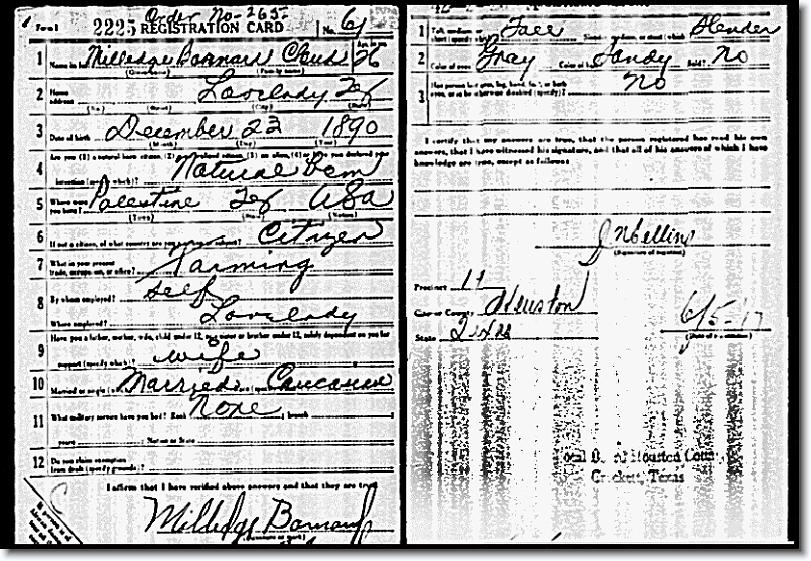 Order No-265-
Form 1 2225 REGISTRATION CARD No. 61
1 Name in full Milledge Barnard Age, in yrs. 26
(Given name) (Family name)
2 Home address Lovelady Tex
(No.) (Street) (City) (State)
3 Date of birth December 23 1890
(Month) (Day) (Year)
4 Are you (1) a natural born citizen, (2) a naturalized citizen, (3) an alien, (4) or have you declared your
intention (specify which)? Natural Born
5 Where were you born? Palestine Tex USA
(Town) (State) (Nation)
6 If not a citizen, of what country are you a citizen or subject? Citizen
7 What is your present trade, occupation, or office? Farming
8 By whom employed? self
Where employed? Lovelady
9 Have you a father, mother, wife, child under 12, or a sister or brother under 12, solely dependent on you for
support (specify which)? wife
10 Married or single (which)? Married Race (specify which)? Caucasian
11 What military service have you had? Rank None branch
years Nation or State
12 Do you claim exemption from draft (specify grounds)?
I affirm that I have verified above answers and that they are true.
Milledge Barnard
1 Tall, medium, or short (specify which)? Tall Slender, medium, or stout (which)? Slender
2 Color of eyes? Gray Color of hair? Sandy Bald? No
3 Has person lost arm, leg, hand, foot, or both
eyes, or is he otherwise disabled (specify)? No
I certify that my answers are true, that the person registered has read his own
answers, that I have witnessed his signature, and that all of his answers of which I have
knowledge are true, except as follows:
(Signature of registrar)
Precinct 11
City or County Houston
State Texas
6/5-17
(Date of registration)
Local Bd. of Houston County
Crockett, Texas